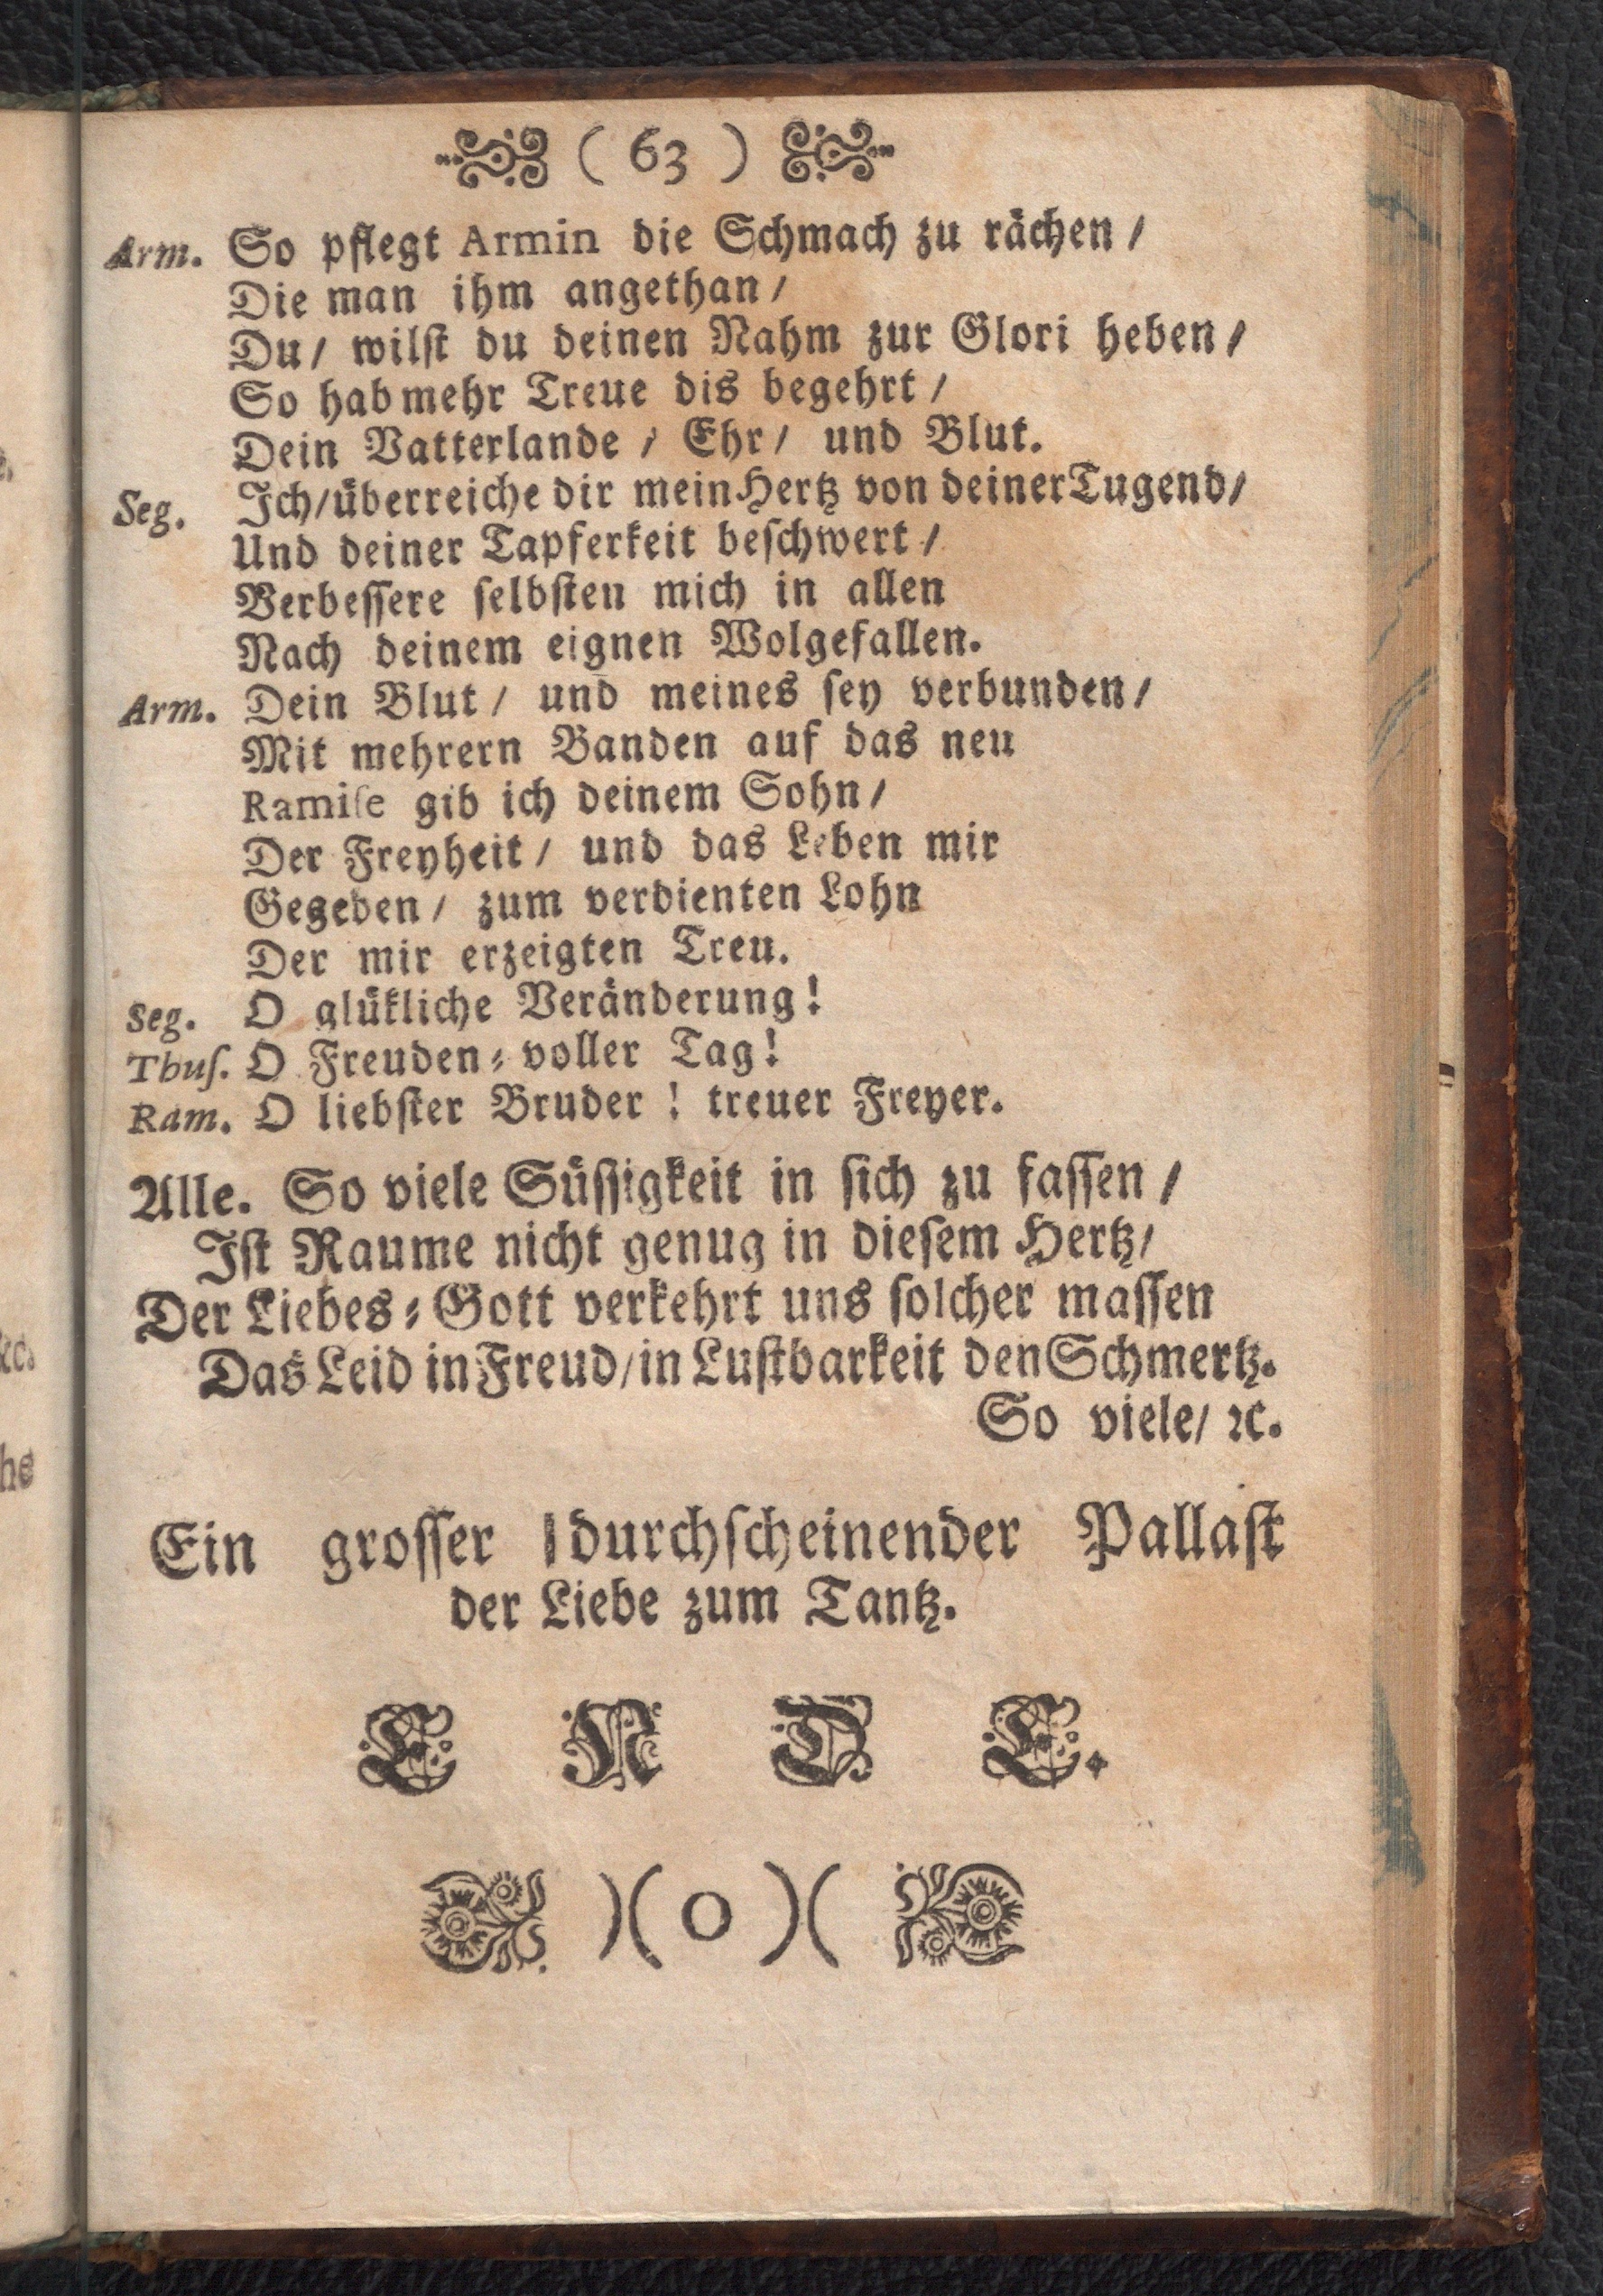 ( 63 )
Arm. So pflegt Armin die Schmach zu rächen /
Die man ihm angethan /
Du / wilſt du deinen Nahm zur Glori heben /
So hab mehr Treue dis begehrt /
Dein Vatterlande / Ehr / und Blut.
Seg. Ich / überreiche dir mein Hertz von deiner Tugend /
Und deiner Tapferkeit beſchwert /
Verbeſſere ſelbſten mich in allen
Nach deinem eignen Wolgefallen.
Arm. Dein Blut / und meines ſey verbunden /
Mit mehrern Banden auf das neu
Ramiſe gib ich deinem Sohn /
Der Freyheit / und das Leben mir
Gegeben / zum verdienten Lohn
Der mir erzeigten Treu.
Seg. O glükliche Veränderung!
Thuſ. O Freuden⸗voller Tag!
Ram. O liebſter Bruder ! treuer Freyer.
Alle. So viele Süſſigkeit in ſich zu faſſen /
Iſt Raume nicht genug in dieſem Hertz /
Der Liebes⸗Gott verkehrt uns ſolcher maſſen
Das Leid in Freud / in Luſtbarkeit den Schmertz.
So viele / ꝛc.
Ein groſſer durchſcheinender Pallaſt
der Liebe zum Tantz.
E N D E.
)( o )(